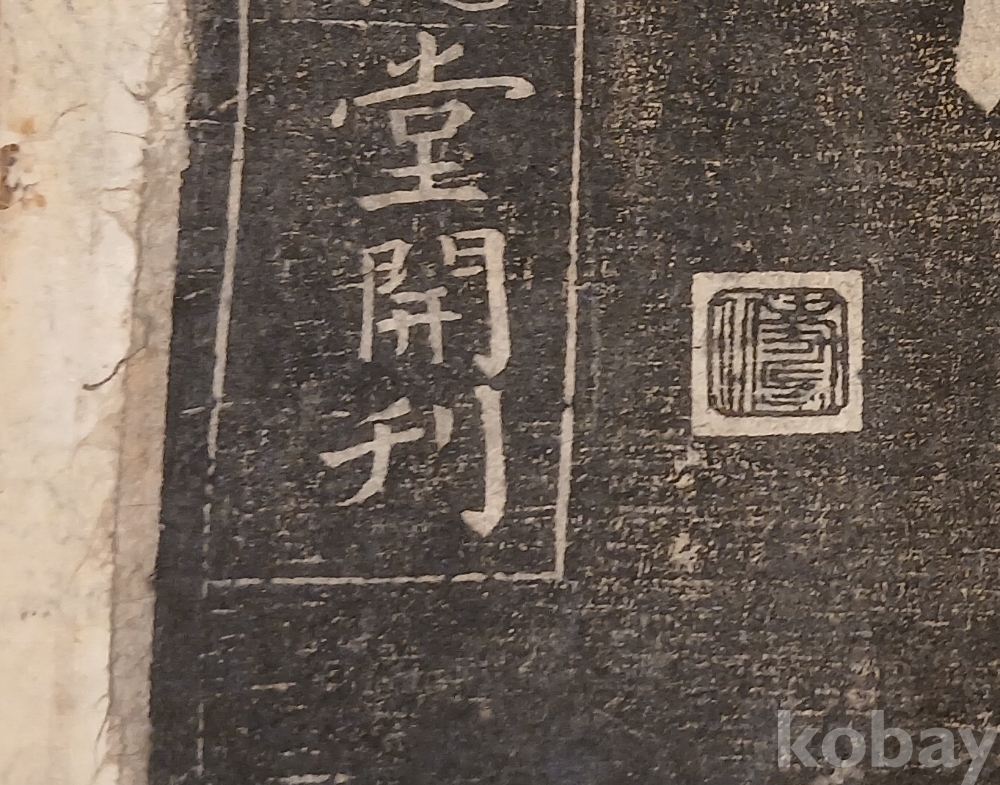 堂開刊
kobay